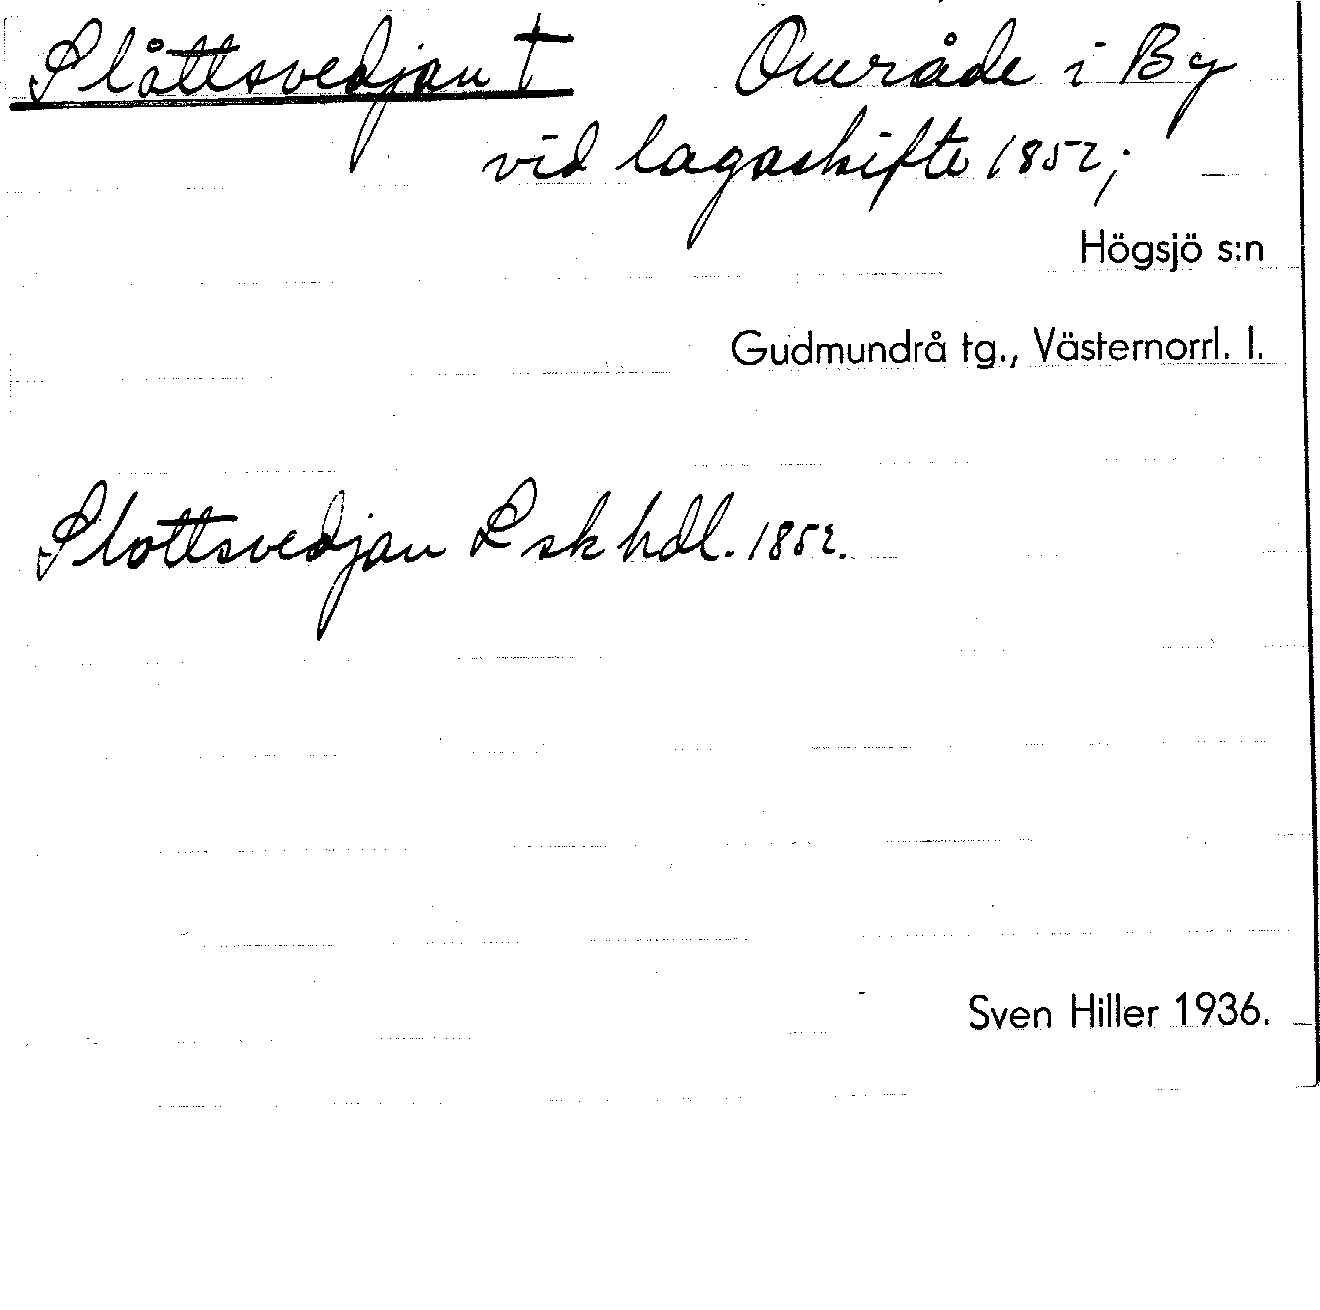 Slåttsvedjan † Område i By
vid lagaskifte 1852;
Högsjö s:n
Gudmundrå tg., Västernorrl. l.
Slottsvedjan L sk hdl. 1852.
Sven Hiller 1936.